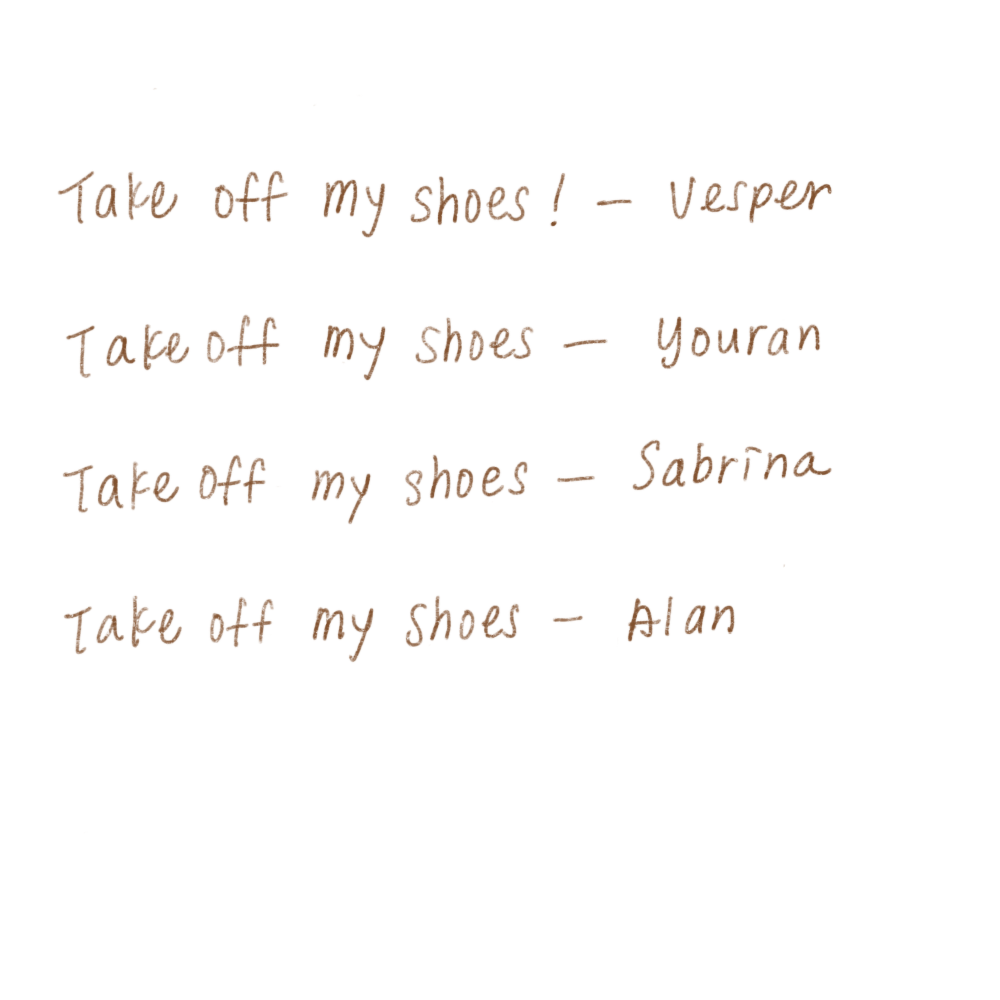 Take off my shoes! — Vesper
Take off my shoes — Youran
Take off my shoes — Sabrina
Take off my shoes — Alan